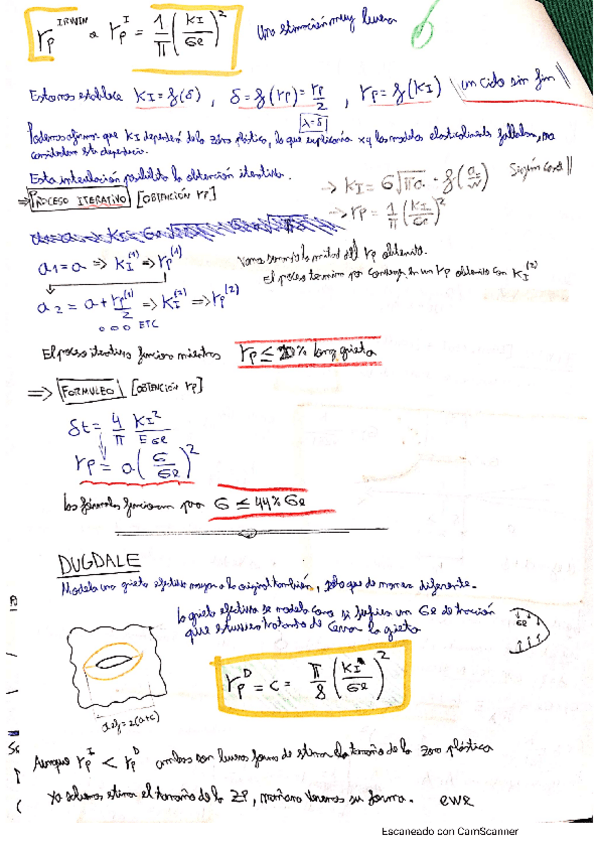 r_p^IRWIN a r_p^I = 1/π (K_I/σ_e)^2 Una estimación muy buena
Estamos establece K_I = f(δ) , δ = f(r_p) = r_p/2 , r_p = f(K_I) \ un ciclo sin fin ||
λ-δ
Podemos afirmar que K_I dependerá de la zona plástica, lo que explicaría xq los modelos elasticolineales fallaban, no
consideraban esta dependencia.
Esta interrelación posibilita la obtención iterativa.
⇒ PROCESO ITERATIVO [OBTENCIÓN r_p]
→ K_I = σ√(πa) · f(a/w) Según caso ||
→ r_p = 1/π (K_I/σ_e)^2
a_1 = a ⇒ K_I^(1) ⇒ r_p^(1)
Vamos sumando la mitad del r_p obtenido.
El proceso termina por converger en un r_p obtenido con K_I^(2)
a_2 = a + r_p^(1)/2 ⇒ K_I^(2) ⇒ r_p^(2)
o o o ETC
El proceso iterativo funciona mientras r_p ≤ 20% long grieta
⇒ FORMULEO [OBTENCIÓN r_p]
δt = 4/π K_I^2/(E σ_e)
r_p = a (σ/σ_e)^2
Las fórmulas funcionan para σ ≤ 44% σ_e
DUGDALE
Modela una grieta efectiva mayor a la original también, solo que de manera diferente.
La grieta efectiva se modela como si hubiera un σ_e de tracción
que estuviera tratando de cerrar la grieta
σ_e
r_p^D = c = π/8 (K_I/σ_e)^2
= 2(a+c)
Aunque r_p^I < r_p^D ambas son buenas formas de estimar el tamaño de la zona plástica
Ya sabemos estimar el tamaño de la ZP, mañana veremos su forma.
Escaneado con CamScanner